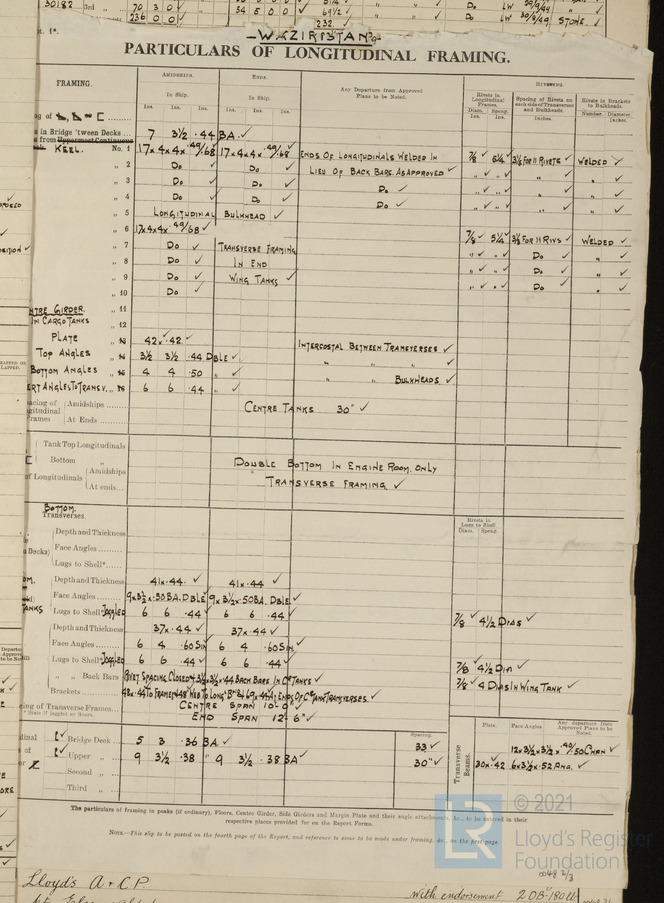 30182 3rd " 70 3 0 ✓ 54 5 0 0 ✓ 69½ " Do LW 30/9/44 "
236 0 0 232. Do LW 30/9/49 STONE.
pt. 1*.
— WAZIRISTAN —
PARTICULARS OF LONGITUDINAL FRAMING.
FRAMING. AMIDSHIPS. ENDS. Any Departure from Approved Plans to be Noted. RIVETING.
In Ship. In Ship. Rivets in Longitudinal Frames. Spacing of Rivets on each side of Transverses and Bulkheads. Rivets in Brackets to Bulkheads.
Ins. Ins. Ins. Ins. Ins. Ins. Diam. Ins. Speng. Ins. Inches. Number. Diameter. Inches.
ng of
s in Bridge 'tween Decks ... 7 3½ .44 BA. ✓
s from Uppermost Continuous
KEEL. No. 1 17×4×4× .49/.68 17×4×4× .49/.68 ✓ ENDS OF LONGITUDINALS WELDED IN 7/8 ✓ 5¼ ✓ 3½ FOR 11 RIVETS ✓ WELDED ✓
" 2 Do ✓ Do ✓ LIEU OF BACK BARS. AS APPROVED ✓ " ✓ " ✓ " ✓ " ✓
" 3 Do ✓ Do ✓ Do ✓ " ✓ " ✓ " ✓ " ✓
" 4 Do ✓ Do ✓ Do ✓ " ✓ " ✓ " ✓ " ✓
" 5 LONGITUDINAL BULKHEAD ✓
" 6 17×4×4× .49/.68 ✓ 7/8 ✓ 5¼ ✓ 3½ FOR 11 RIVS ✓ WELDED ✓
" 7 Do ✓ TRANSVERSE FRAMING " ✓ " ✓ Do ✓ " ✓
" 8 Do ✓ IN END " ✓ " ✓ Do ✓ " ✓
" 9 Do ✓ WING TANKS ✓ " ✓ " ✓ Do ✓ " ✓
" 10 Do ✓ " ✓ " ✓ Do ✓ " ✓
NTRE GIRDER. " 11
IN CARGO TANKS " 12
PLATE " 42 × .42 ✓ INTERCOSTAL BETWEEN TRANSVERSES ✓
TOP ANGLES " 3½ 3½ .44 DBLE ✓ " " " ✓
BOTTOM ANGLES " 4 4 .50 " ✓
ERT ANGLES TO TRANSV... " 6 6 .44 " ✓ " " BULKHEADS ✓
acing of Longitudinal Frames Amidships ....... CENTRE TANKS 30" ✓
At Ends .......
Tank Top Longitudinals
Bottom "
of Longitudinals Amidships DOUBLE BOTTOM IN ENGINE ROOM ONLY
At ends... TRANSVERSE FRAMING ✓
BOTTOM
Transverses.
Rivets in Lugs to Shell.
Diam. Speng.
Depth and Thickness
Decks) Face Angles ........
Lugs to Shell* ......
OM. Depth and Thickness 41 × .44 ✓ 41 × .44 ✓
Face Angles ..... 9×3½ × .50 BA. DBLE 9×3½ × .50 BA. DBLE ✓
TANKS Lugs to Shell* JOGGLED 6 6 .44 ✓ 6 6 .44 ✓ 7/8 ✓ 4½ DIAS ✓
Depth and Thickness 37 × .44 ✓ 37 × .44 ✓
Face Angles ..... 6 4 .60 SIN ✓ 6 4 .60 SIN. ✓
Lugs to Shell* JOGGLED 6 6 .44 ✓ 6 6 .44 ✓ 7/8 ✓ 4½ DIA ✓
" " Back Bars RIVET SPACING CLOSED & 3½×3½×.44 BACK BARS IN CR TANKS ✓ 7/8 ✓ 4 DIAS IN WING TANK ✓
Brackets ........
ing of Transverse Frames ..... CENTRE SPAN 10'-0" ✓
* State if joggled or liners. END SPAN 12'-6" ✓
Spacing. Transverse Beams. Plate. Face Angles. Any departure from Approved Plans to be Noted.
dinal Bridge Deck 5 3 .36 BA ✓ 33 ✓ 12×3½×3½× .40/.50 CHAN ✓
s of Upper " 9 3½ .38 " 9 3½ .38 BA ✓ 30" ✓ 30 × .42 6×3½×.52 ANG. ✓
or Second " ..
Third " ..
The particulars of framing in peaks (if ordinary), Floors, Centre Girder, Side Girders and Margin Plate and their angle attachments, &c., to be entered in their
respective places provided for on the Report Forms.
NOTE.—This slip to be posted on the fourth page of the Report, and reference to same to be made under framing, &c., on the first page.
© 2021
LR Lloyd's Register
Foundation
0048 2/3
Lloyd's A & C.P.
with endorsement